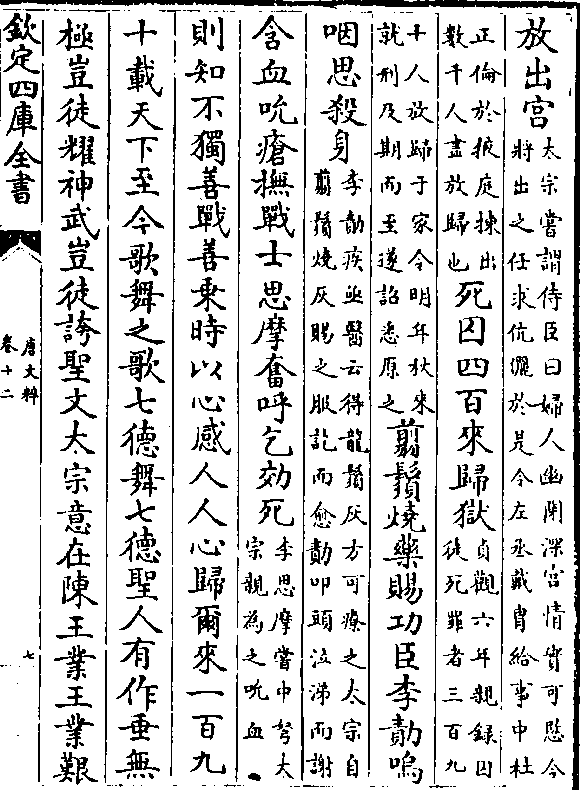 放出宮
太宗嘗謂侍臣曰婦人幽閉深宮情實可愍今
將出之任求伉儷於是令左丞戴胄給事中杜
正倫於掖庭揀出
數千人盡放歸也
死囚四百來歸獄
貞觀六年親録囚
徒死罪者三百九
十人放歸于家令明年秋來
就刑及期而至遂詔悉原之
翦鬚燒藥賜功臣李勣嗚
咽思殺身
李勣疾亟醫云得龍鬚灰方可療之太宗自
翦鬚燒灰賜之服訖而愈勣叩頭泣涕而謝
含血吮瘡撫戰士思摩奮呼乞効死
李思摩嘗中弩太
宗親為之吮血
則知不獨善戰善乗時以心感人人心歸爾來一百九
十載天下至今歌舞之歌七德舞七德聖人有作垂無
極豈徒耀神武豈徒誇聖文太宗意在陳王業王業艱
欽定四庫全書
唐文粹
卷十二
七